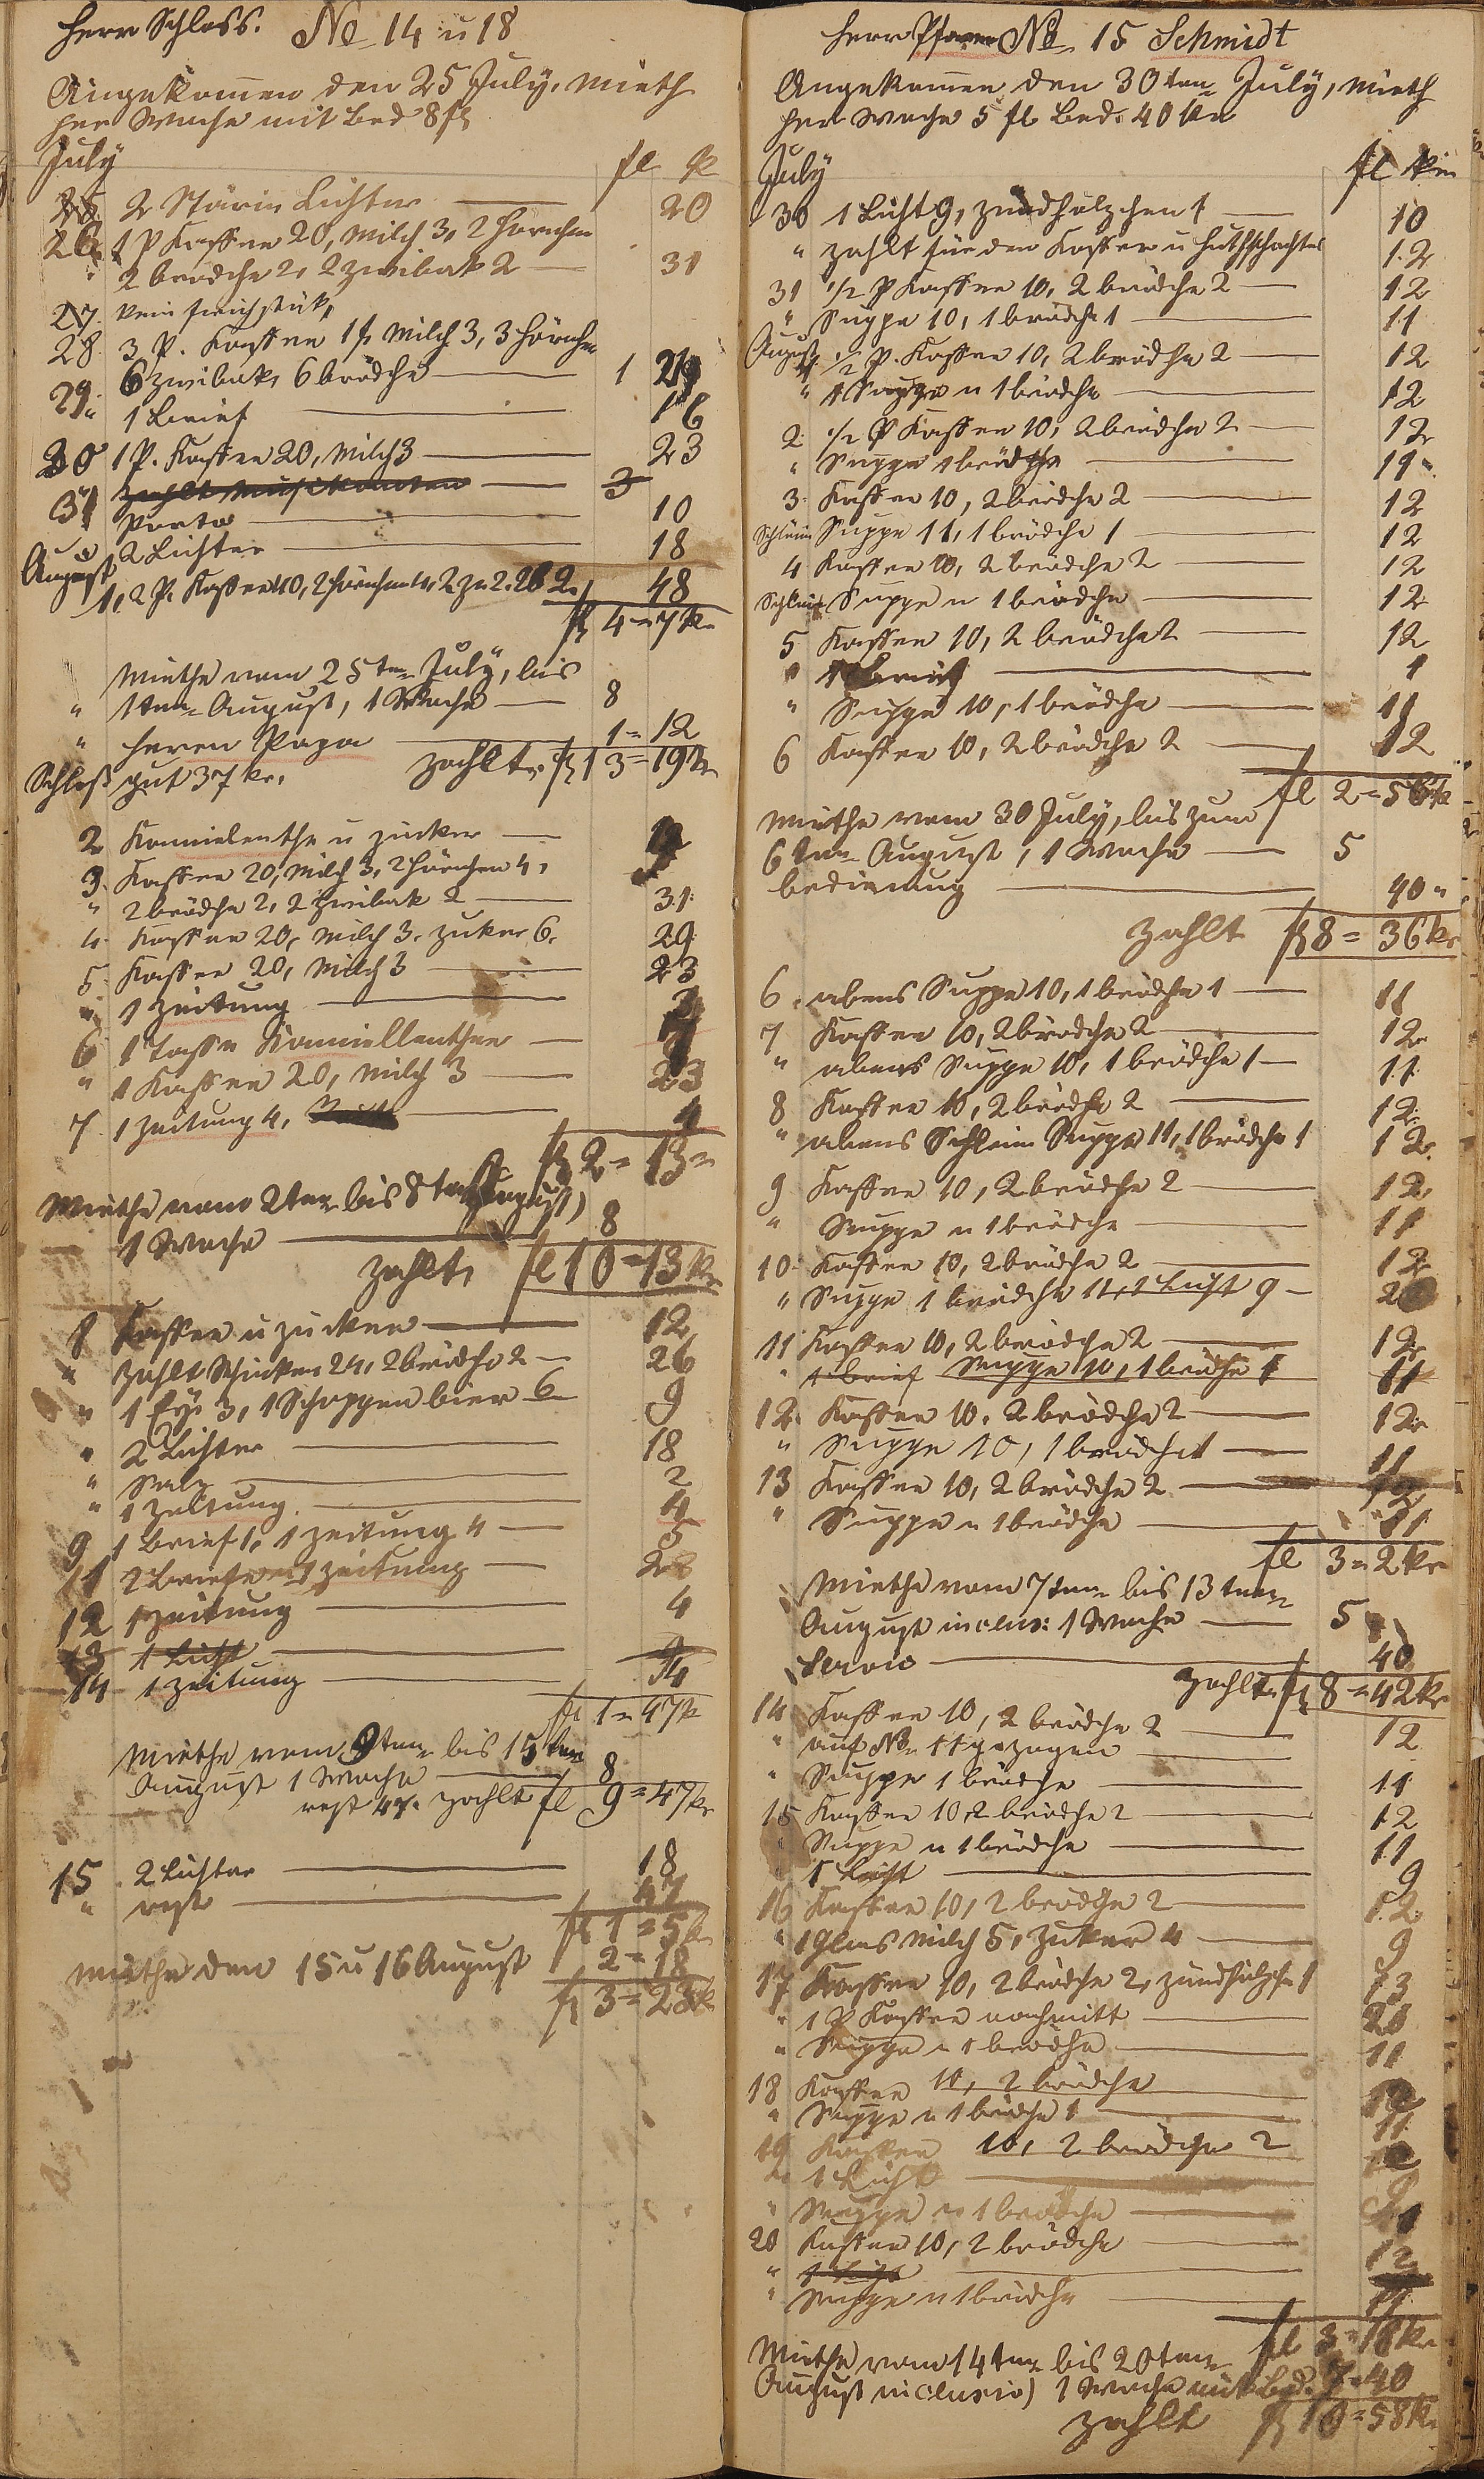 Herr Schloss. No 14 u 18
Angekomen den 25 July, mieth
per Woche mit Bed 8 fl
July fl k
25 2 Stärin Lichter 20
26 1 P Kaffee 20, Milch 3, 2 Hörnchen
" 2 brödche 2, 2 Zwibak 2 31
27. kein freistük,
28. 3 P. Kaffee 1 f, Milch 3, 3 Hörnche
29. 6 Zwibak, 6 brödche 1
" 1 Brief 16
30 1 P. Kaffee 20, Milch 3 23
31 zahlt Musikanten 3
Porto 10
2 Lichter 18
August
1, 2 P. Kaffee 40, 2 Hörnchen 4, 2 Zw 2. 2 b 2. 48
fl 4 = 7 kr
Miethe vom 25ten July, bis
" 1ten August, 1 Woche 8
" Herrn Papa 1 = 12
Schloß gut 37 kr. zahlt fl 13 = 19 k
2 Kamielenthe u zucker
3. Kaffee 20, Milch 3, 2 Hörnchen 4,
" 2 brödche 2, 2 Zwibak 2 31
4. Kaffee 20, Milch 3. Zuker 6. 29
5 Kaffee 20, Milch 3 23
" 1 Zeitung
6 1 Tasse Kamillenthee
" 1 Kaffee 20, Milch 3 23
7. 1 Zeitung 4, 4
fl 2 = 13 =
Miethe vom 2ten bis 8ten August)
1 Woche 8
zahlt, fl 10 = 13 kr
8 Kaffee u zucker 12
" zahlt Schinken 24, 2 brödche 2 26
" 1 Eÿr 3, 1 Schoppen bier 6 9
" 2 Lichter 18
" Salz 2
" 1 Zeitung 4
9 1 brief 1, 1 Zeitung 4 5
11 2 Brief 1 Zeitung
12 1 Zeitung 4
13 1 Licht 9
14 1 Zeitung 4
fl 1 = 47 k
Miethe vom 9ten bis 15ten
August 1 Woche 8
rest 47. zahlt fl 9 = 47 kr
15 2 Lichter 18
" rest 47
fl 1 = 5 k
Miethe den 15 u 16 August 2 = 18
fl 3 = 23 k
Herr Pfarrer No 15 Schmidt
Angekomen den 30ten July, mieth
per Woche 5 fl Bed. 40 kr
July fl kr
30 1 Licht 9, Zündhölzchen 1 10
" zahlt für den Koffer u Huthschachtel 12
31 1/2 P Kaffee 10, 2 brödche 2 12
" Suppe 10, 1 brödch 1 11
August
1 1/2 P. Kaffee 10, 2 brödche 2 12
" 1 Suppe u 1 brödche 12
2. 1/2 P Kaffee 10, 2 brödche 2 12
" Suppe 1 brödche 11
3. Kaffee 10, 2 brödche 2 12
Schleim Suppe 11, 1 brödche 1 12
4 Kaffee 10, 2 brödche 2 12
Schleim Suppe u 1 brödche 12
5 Kaffee 10, 2 brödche 2 12
" 1 brief 1
" Suppe 10, 1 brödche 11
6 Kaffee 10, 2 brödche 2 12
fl 2 = 56 k
Miethe vom 30 July, bis zum
6ten August, 1 Woche 5
bedienung 40 "
zahlt fl 8 = 36 kr
6. abens Suppe 10, 1 brödche 1 11
7 Kaffee 10, 2 brödche 2 12
" abens Suppe 10, 1 brödche 1 11
8 Kaffee 10, 2 brödche 2 12
" abens Schleim Suppe 11, 1 brödche 1 12
9 Kaffee 10, 2 brödche 2 12
" Suppe u 1 brödche 11
10. Kaffee 10, 2 brödche 2 12
" Suppe 1 brödche 11, 1 Licht 9 20
11 Kaffee 10, 2 brödche 2 12
" 1 brief Suppe 10, 1 brödche 1 11
12. Kaffee 10, 2 brödche 2 12
" Suppe 10, 1 brödche 1 11
13 Kaffee 10, 2 brödche 2 12
" Suppe u 1 brödche 11
fl 3 = 2 kr
Miethe vom 7ten bis 13ten
August inclus: 1 Woche 5
Servis 40
zahlt fl 8 = 42 kr
14 Kaffee 10, 2 brödche 2 12
" auf No 11 gezogen
" Suppe 1 brödche 11
15 Kaffee 10, 2 brödche 2 12
" Suppe u 1 brödche 11
" 1 Licht 9
16 Kaffee 10, 2 brödche 2 12
" 1 Glas Milch 5, Zuker 4 9
17 Kaffee 10, 2 brödche 2, Zündhölzche 1 13
" 1 P Kaffee nachmitt 20
" Suppe u 1 brödche 11
18 Kaffee 10, 2 brödche 12
" Suppe u 1 brödche 1 11
19 Kaffee 10, 2 brödche 2 12
" 1 Licht 9
" Suppe u 1 brödche 11
20 Kaffee 10, 2 brödche 12
" 1 Licht
" Suppe u 1 brödche 11
fl 3 = 18 kr
Miethe vom 14ten bis 20ten
August inclusiv) 1 Woche mit Bed. 7 = 40
zahlt fl 10 = 58 kr